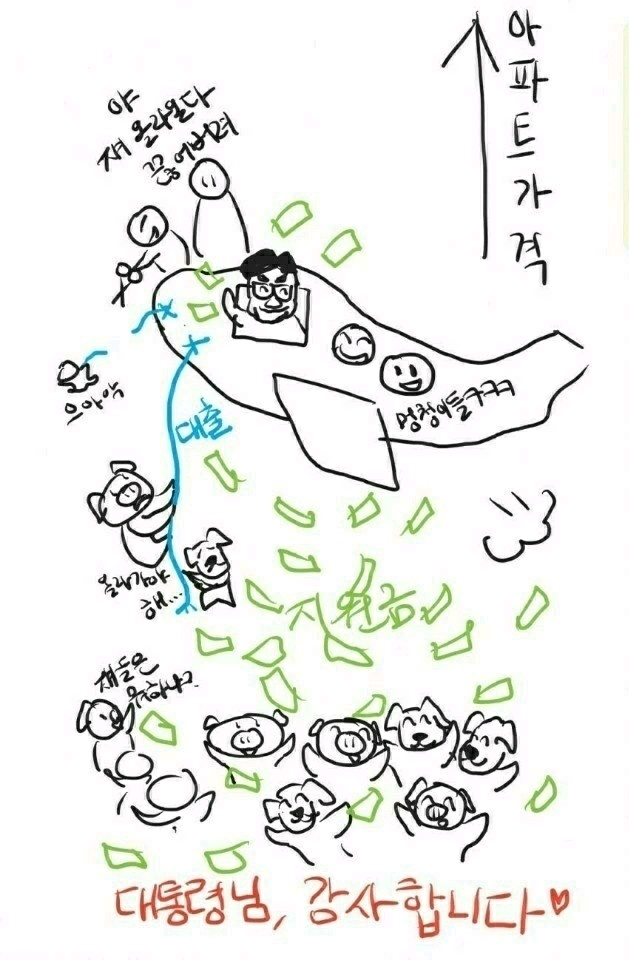 아파트가격
야
져 올라온다
끊어버려
으아악
대출
멍청이들ㅋㅋㅋ
올라가야
해...
지원금
쟤들은
뭐하냐?
대통령님, 감사합니다♡